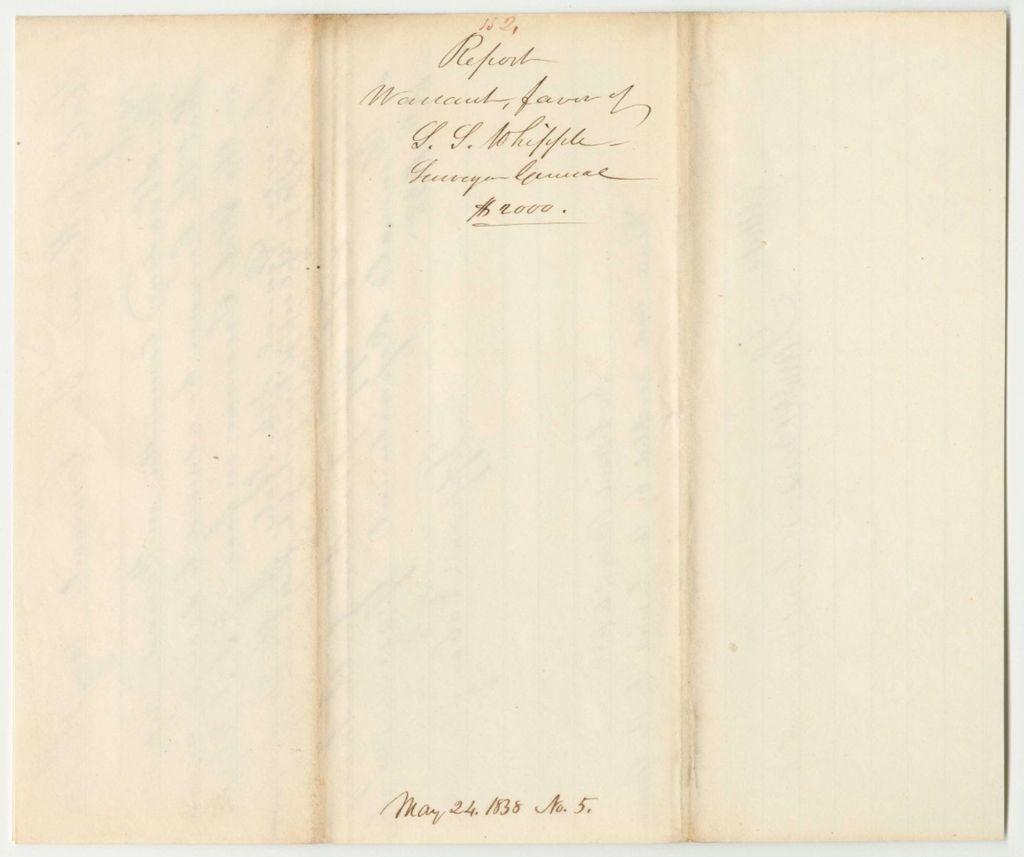 182.
Report
Warrant, favor of
S. S. Whipple
Surveyor General
$2000.
May 24. 1838 No. 5.